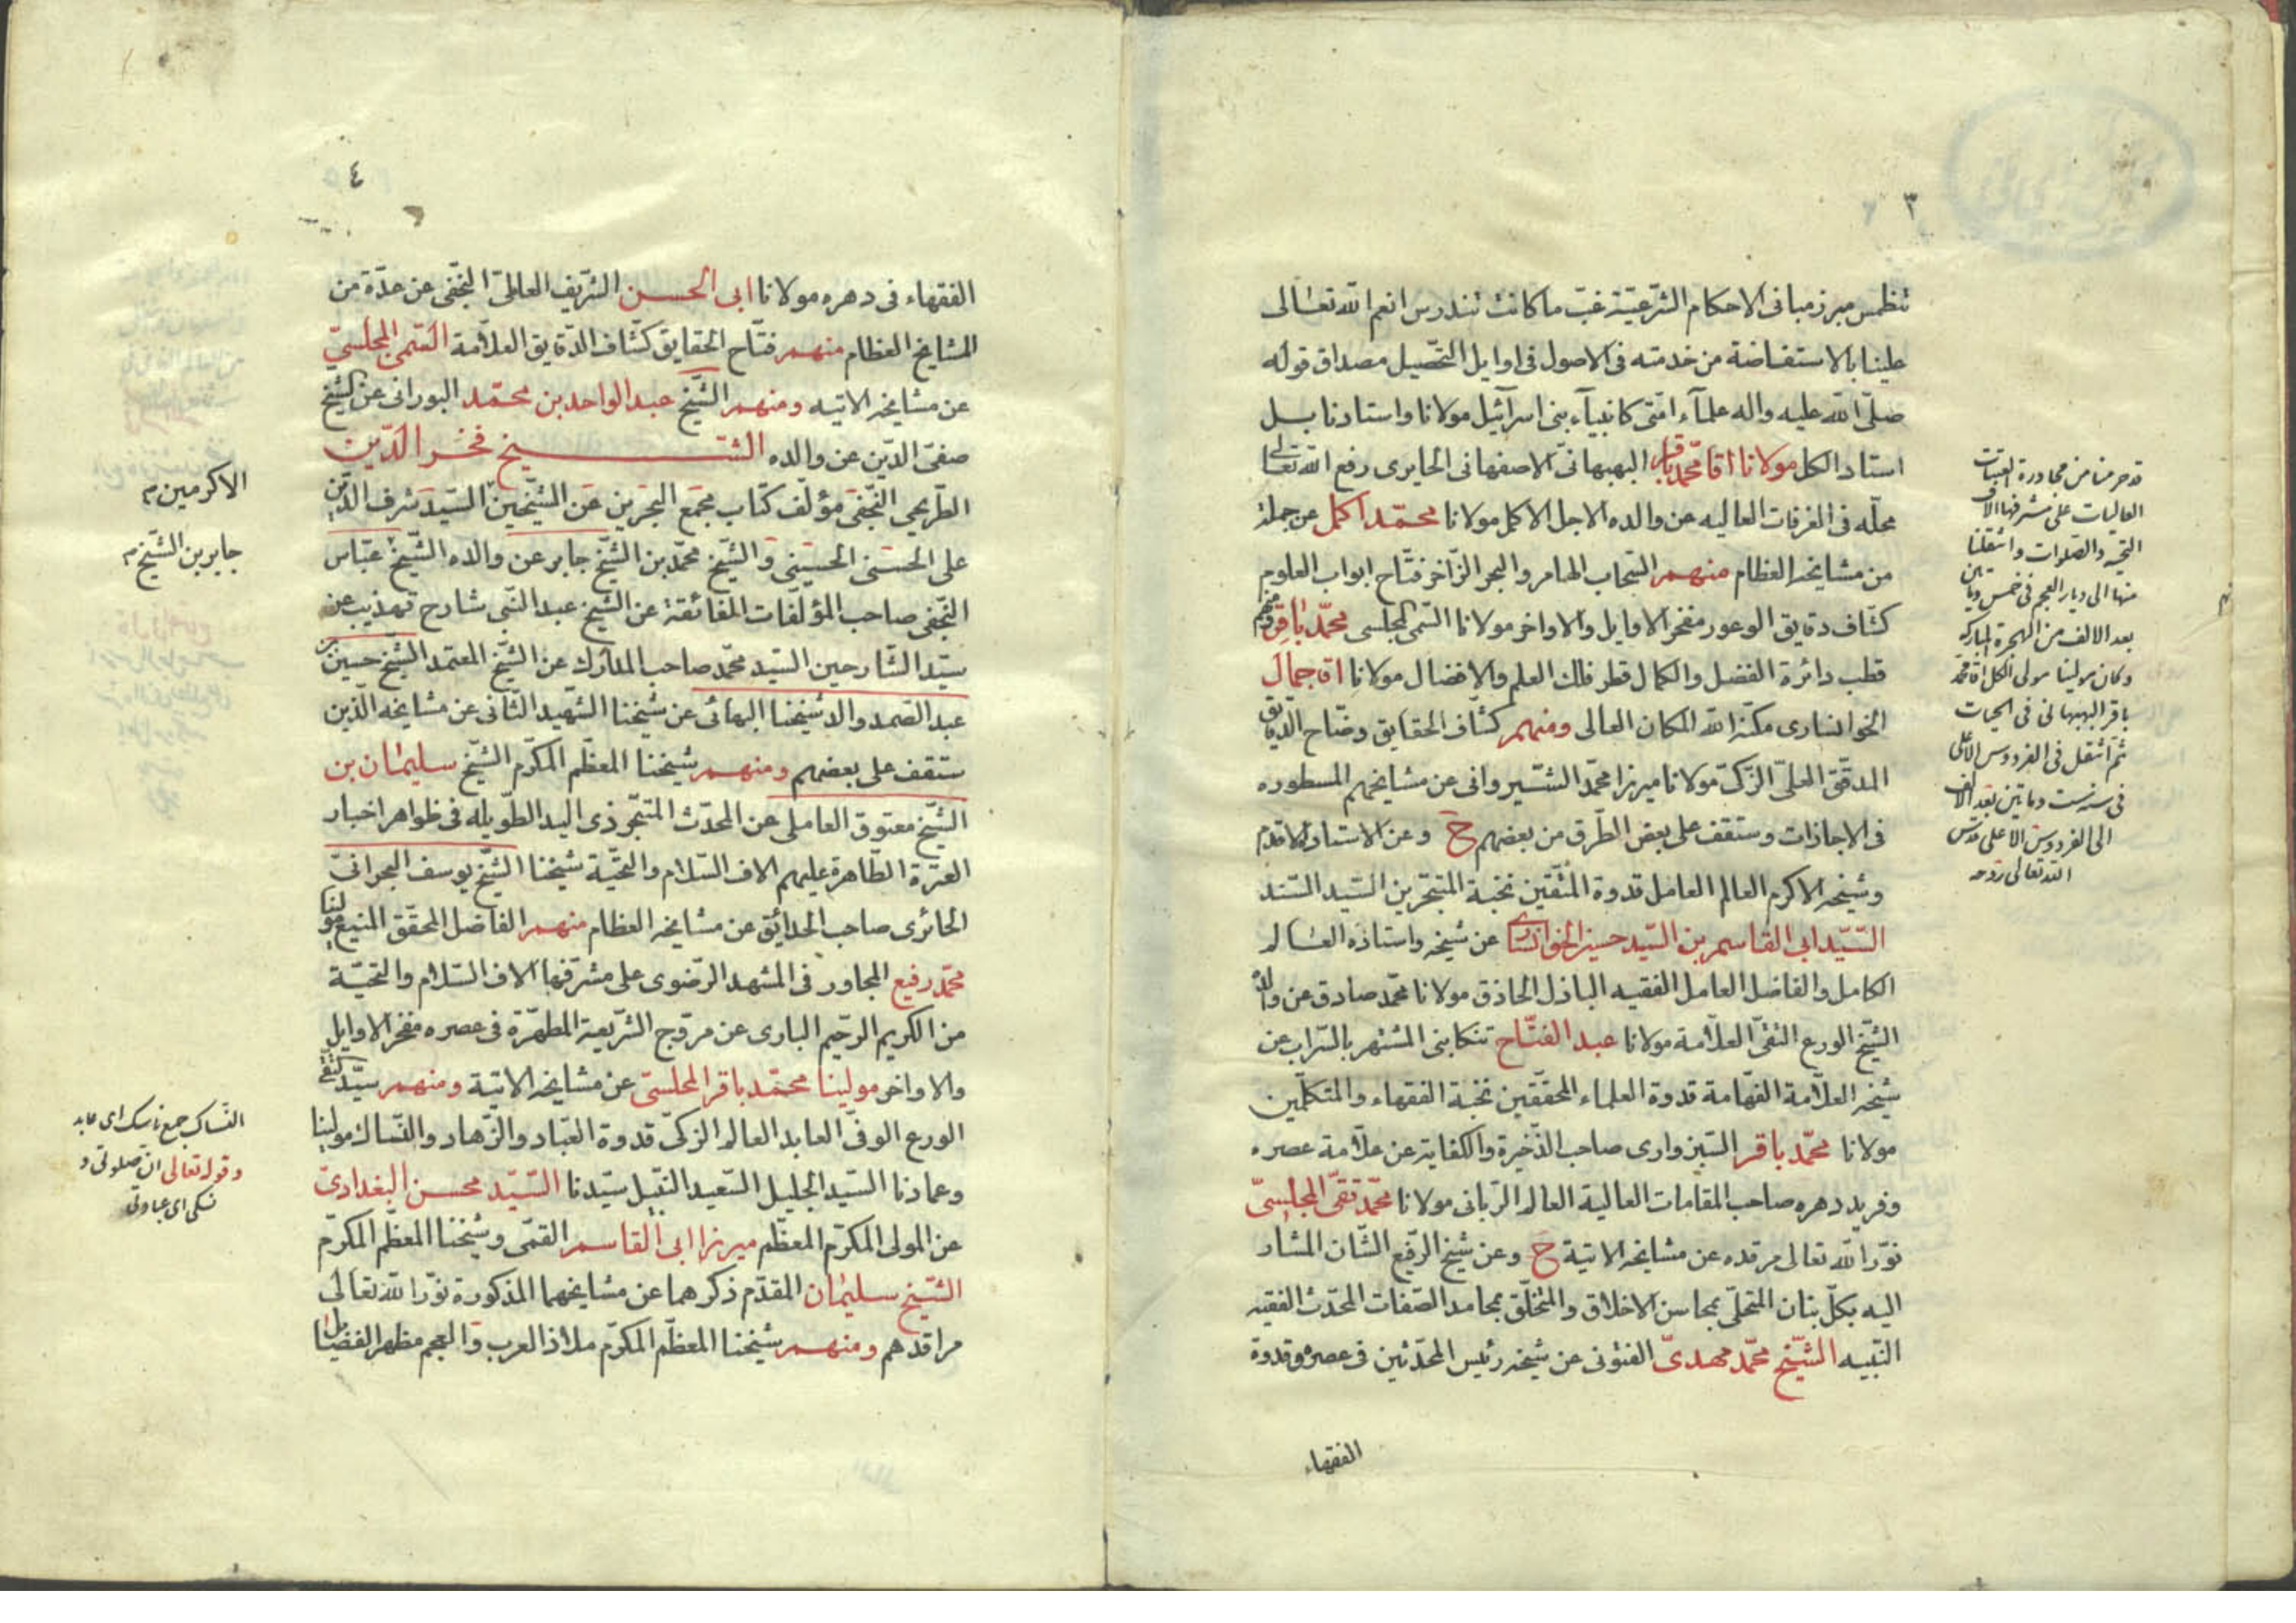 ٣
تنطمس مبرز مبانى الاحكام الشرعيّة غبّ ما كانت تندرس انعم الله تعالى
علينا بالاستفاضة من خدمته فى الاصول فى اوايل التحصيل مصداق قوله
صلّى الله عليه واله علمآء امّتى كانبيآء بنى اسرآئيل مولانا واستادنا بل
استاد الكل مولانا اقا محمّد باقر البهبهانىّ الاصفهانى الحايرى رفع الله تعالى
محلّه فى الغرفات العاليه عن والده الاجل الاكمل مولانا محمّد اكمل عن جملة
من مشايخه العظام منهم السّحاب الهامر والبحر الزّاخر فتّاح ابواب العلوم
كشّاف دقايق الوعور مفخر الاوايل والاواخر مولانا السّمى المجلسى محمّد باقر ومنهم
قطب دائرة الفضل والكمال قطر فلك العلم والافضال مولانا اقا جمال
الخوانسارى مكّنه الله المكان العالى ومنهم كشّاف الحقايق وضّاح الدّقايق
المدقّق العلىّ الزّكىّ مولانا ميرزا محمّد الشّيروانى عن مشايخهم المسطوره
فى الاجازات وستقف على بعض الطّرق من بعضهم ح وعن الاستاد الاقدم
وشيخه الاكرم العالم العامل قدوة المتّقين نخبة المتبحّرين السّيد السّند
السّيّد ابى القاسم بن السّيد حسين الخوانسارى عن شيخه واستاذه العالم
الكامل والفاضل العامل الفقيه الباذل الحاذق مولانا محمّد صادق عن والده
الشّيخ الورع التقىّ العلّامة مولانا عبد الفتّاح تنكابنى المشتهر بالسّراب عن
شيخه العلّامة الفهّامة قدوة العلماء المحقّقين نخبة الفقهاء والمتكلّمين
مولانا محمّد باقر السّبزوارى صاحب الذّخيرة والكفاية عن علّامة عصره
وفريد دهره صاحب المقامات العالية العالم الرّبانى مولانا محمّد تقىّ المجلسىّ
نوّر الله تعالى مرقده عن مشايخه الاتية ح وعن شيخ الرّفيع الشّان المشار
اليه بكلّ بنان المتحلّى بمحاسن الاخلاق والمتخلّق بمحامد الصّفات المحدّث الفقيه
النّبيه الشّيخ محمّد مهدىّ الفتونى عن شيخه رئيس المحدّثين فى عصره وقدوة
الفقهاء
قد حرمنا من مجاورة العتبات
العاليات على مشرفها الاف
التحيه والصلوات وانتقلنا
منها الى ديار العجم فى خمس ومايتين
بعد الالف من الهجرة المباركه
وكان مولينا مولى الكل اقا محمد
باقر البهبهانى فى الحيات
ثم انتقل فى الفردوس الاعلى
فى سنه ست ومايتين بعد الالف
الى الفردوس الاعلى قدس
الله تعالى روحه
٤
الفقهاء فى دهره مولانا ابى الحسن الشّريف العاملىّ النّجفى عن عدّة من
المشايخ العظام منهم فتّاح الحقايق كشّاف الدّقايق العلّامة السّمى المجلسىّ
عن مشايخه الاتيه ومنهم الشّيخ عبد الواحد بن محمّد البورانى عن الشّيخ
صفىّ الدّين عن والده الشّيخ فخر الدّين
الطّريحى النّجفى مؤلّف كتاب مجمع البحرين عن الشّيخين السّيد شرف الدّين
على الحسنى الحسينى والشّيخ محمّد بن الشّيخ جابر عن والده الشّيخ عبّاس
النّجفى صاحب المؤلّفات الفائقة عن الشّيخ عبد النّبى شارح تهذيب عن
سيّد الشّارحين السّيد محمّد صاحب المدارك عن الشّيخ المعتمد الشّيخ حسين بن
عبد الصّمد والد شيخنا البهائى عن شيخنا الشّهيد الثّانى عن مشايخه الّذين
ستقف على بعضهم ومنهم شيخنا المعظّم المكرّم الشّيخ سليمان بن
الشّيخ معتوق العاملى عن المحدّث المتبحّر ذى اليد الطّويله فى ظواهر اخبار
العترة الطّاهرة عليهم الاف السّلام والتّحيّة شيخنا الشّيخ يوسف البحرانىّ
الحائرى صاحب الحدائق عن مشايخه العظام منهم الفاضل المحقّق المنيع مولنا
محمّد رفيع المجاور فى المشهد الرّضوى على مشرّفها الاف السّلام والتّحيّة
من الكريم الرّحيم البارى عن مروّج الشّريعة المطهّرة فى عصره مفخر الاوايل
والاواخر مولينا محمّد باقر المجلسىّ عن مشايخه الاتية ومنهم سيّد التقى
الورع الوفىّ العابد العالم الزكىّ قدوة العبّاد والزّهاد والنّساك مولينا
وعمادنا السّيد الجليل السّعيد النّبيل سيّدنا السّيّد محسن البغدادىّ
عن المولى المكرّم المعظّم ميرزا ابى القاسم القمّى وشيخنا المعظّم المكرّم
الشّيخ سليمان المقدّم ذكرهما عن مشايخهما المذكورة نوّر الله تعالى
مراقدهم ومنهم شيخنا المعظّم المكرّم ملاذ العرب والعجم مظهر الفضايل
الاكرمين م
جابر بن الشّيخ م
النسّاك جمع ناسك اى عابد
وقوله تعالى ان صلوتى و
نسكى اى عبادتى